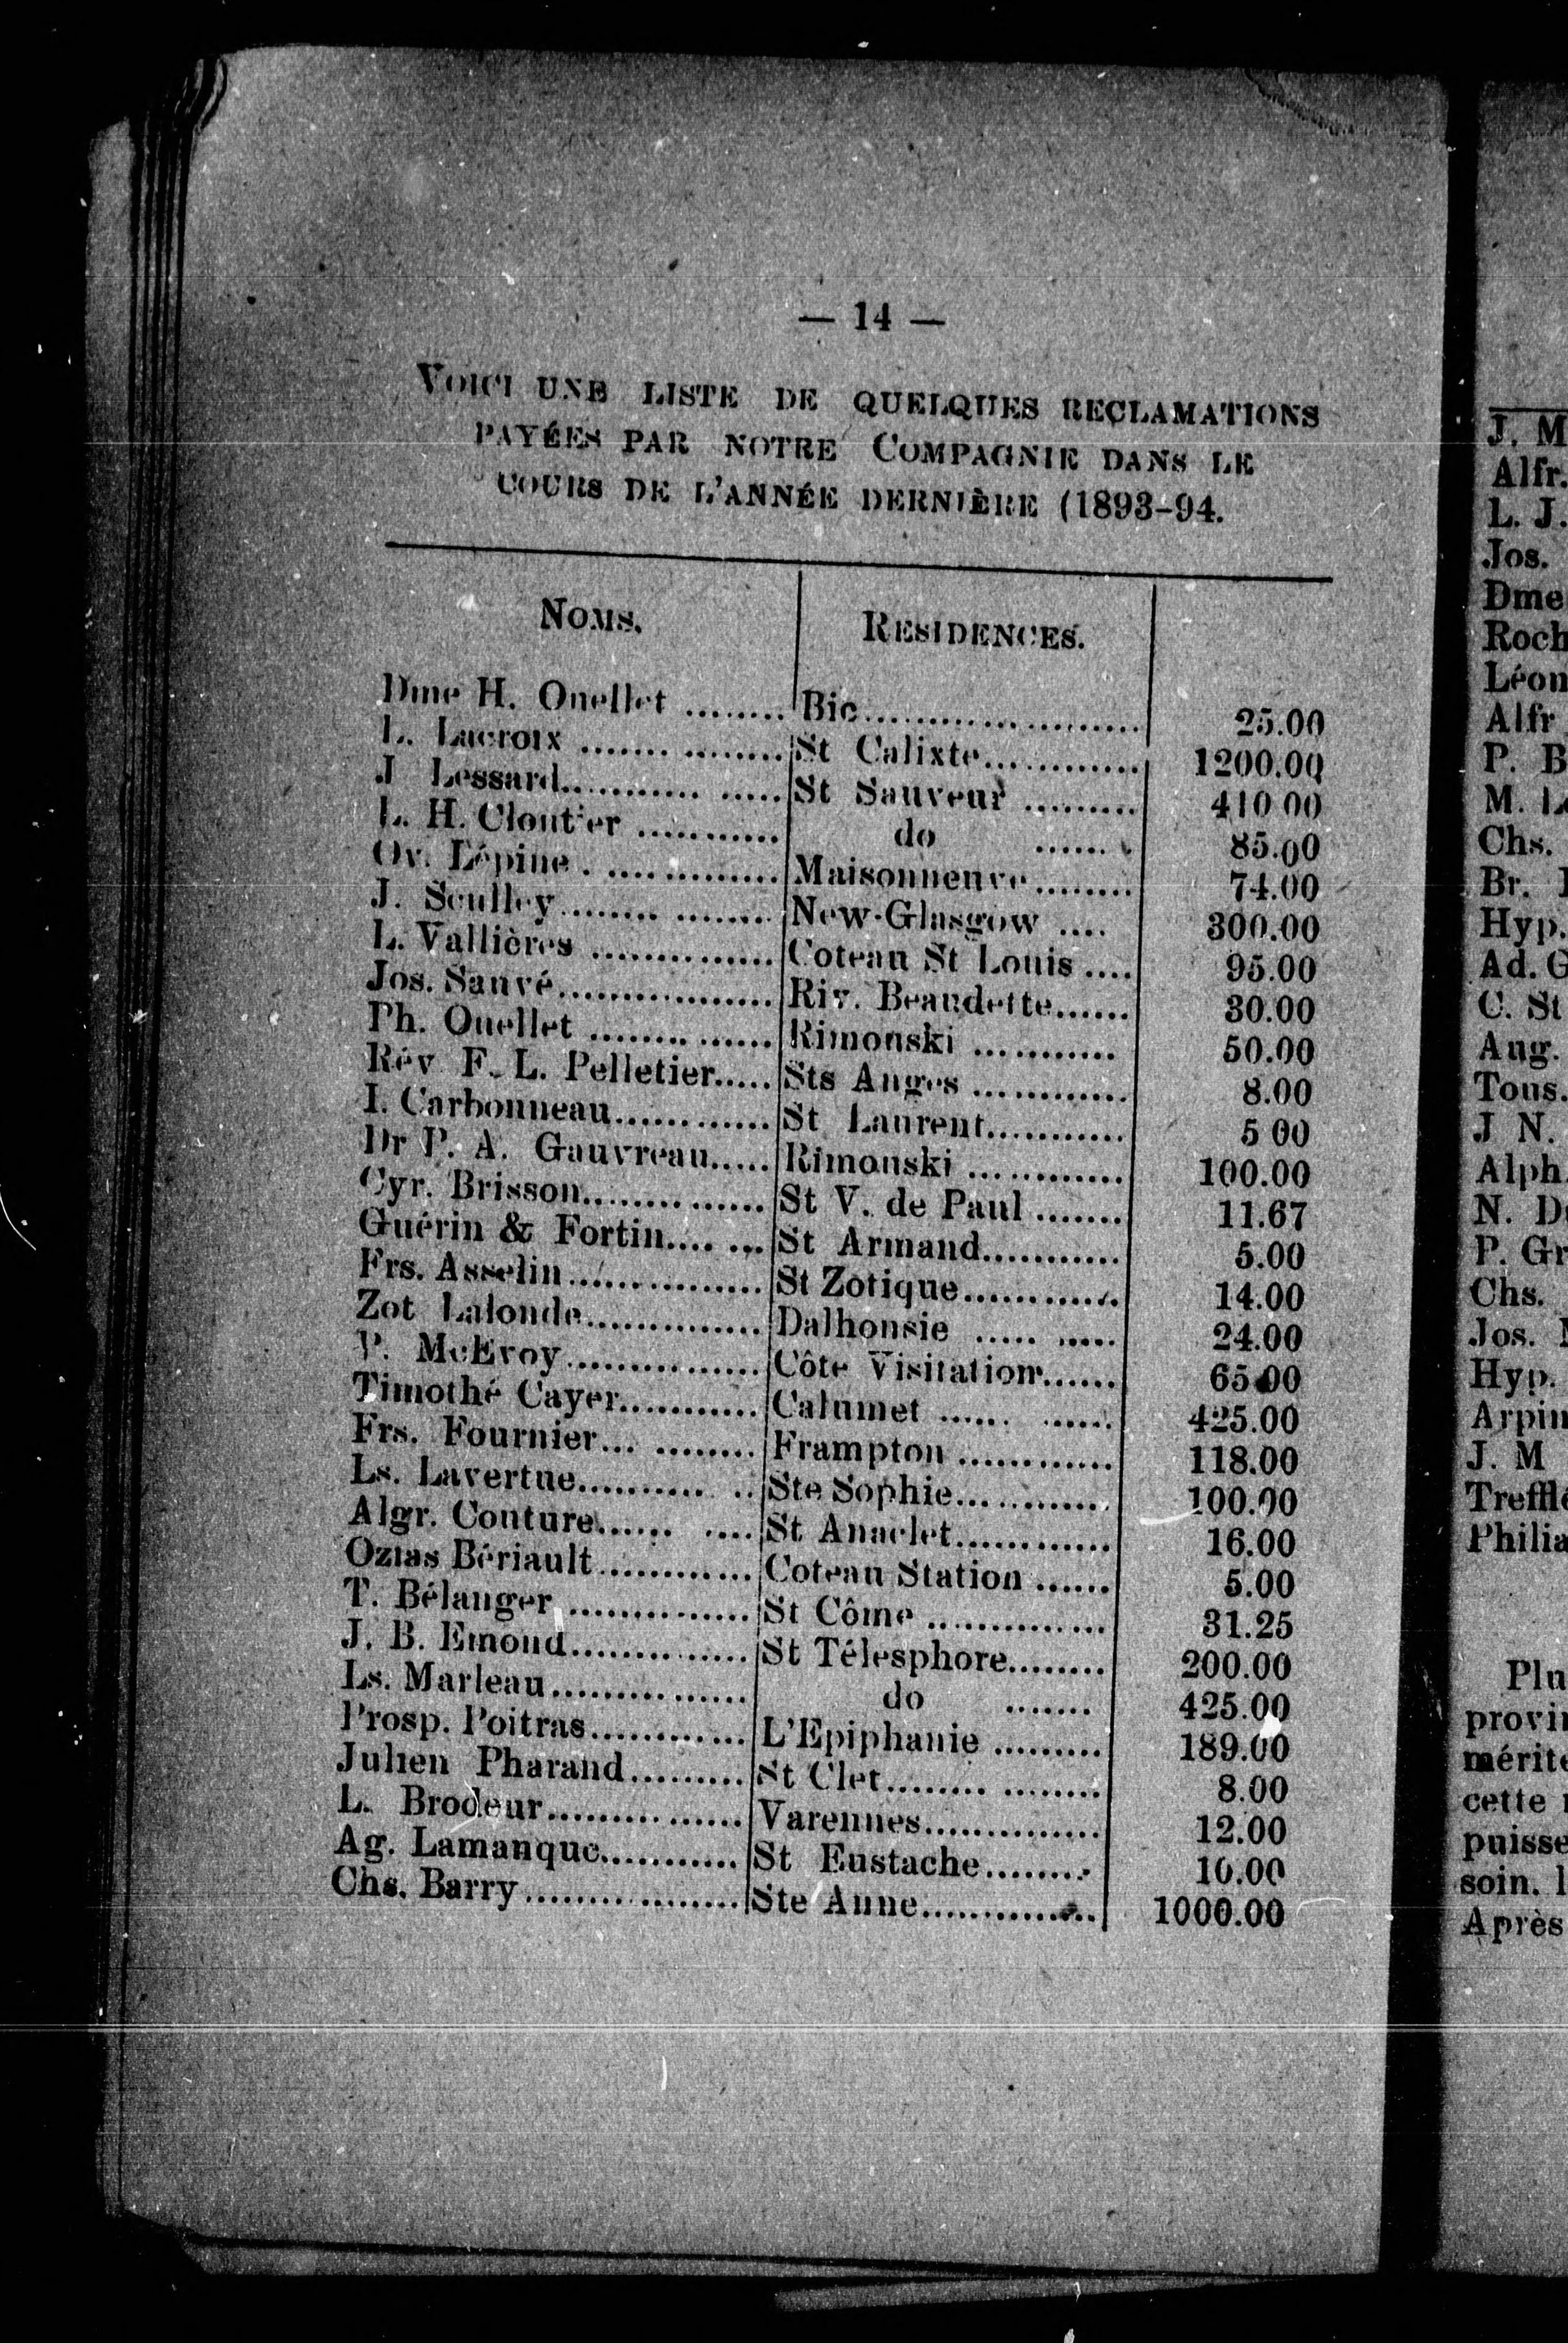 — 14 —
VOICI UNE LISTE DE QUELQUES RECLAMATIONS
PAYÉES PAR NOTRE COMPAGNIE DANS LE
COURS DE L'ANNÉE DERNIÈRE (1893-94.
NOMS. RESIDENCES.
Dme H. Ouellet ........ Bic........................ 25.00
L. Lacroix ................ St Calixte............. 1200.00
J Lessard................. St Sauveur ......... 410 00
L. H. Cloutier ........... do ...... 85.00
Ov. Lépine . ............. Maisonneuve........ 74.00
J. Sculley................. New-Glasgow .... 300.00
L. Vallières .............. Coteau St Louis .... 95.00
Jos. Sauvé................. Riv. Beaudette...... 30.00
Ph. Ouellet .............. Rimouski ........... 50.00
Rév F. L. Pelletier..... Sts Anges ............ 8.00
I. Carbonneau............ St Laurent........... 5 00
Dr P. A. Gauvreau..... Rimouski ............ 100.00
Cyr. Brisson.............. St V. de Paul ....... 11.67
Guérin & Fortin.... ... St Armand........... 5.00
Frs. Asselin............... St Zotique............ 14.00
Zot Lalonde.............. Dalhousie ..... ..... 24.00
P. McEvoy............... Côte Visitation...... 65.00
Timothé Cayer........... Calumet ...... ...... 425.00
Frs. Fournier... ........ Frampton ............ 118.00
Ls. Lavertue.......... .. Ste Sophie............ 100.00
Algr. Couture...... .... St Anaclet............ 16.00
Ozias Bériault............ Coteau Station ...... 5.00
T. Bélanger .............. St Côme .............. 31.25
J. B. Emond.............. St Télesphore........ 200.00
Ls. Marleau............... do ....... 425.00
Prosp. Poitras............ L'Epiphanie ......... 189.00
Julien Pharand......... St Clet........ ........ 8.00
L. Brodeur............... Varennes.............. 12.00
Ag. Lamanque........... St Eustache........ 10.00
Chs. Barry................. Ste Anne.............. 1000.00
J. M
Alfr.
L. J.
Jos.
Dme
Roch
Léon
Alfr
P. B
M. L
Chs.
Br.
Hyp.
Ad. G
C. St
Aug.
Tous.
J N.
Alph.
N. D
P. Gr
Chs.
Jos.
Hyp.
Arpin
J. M
Trefflé
Philia
Plu
provin
mérite
cette
puisse
soin. l
Après